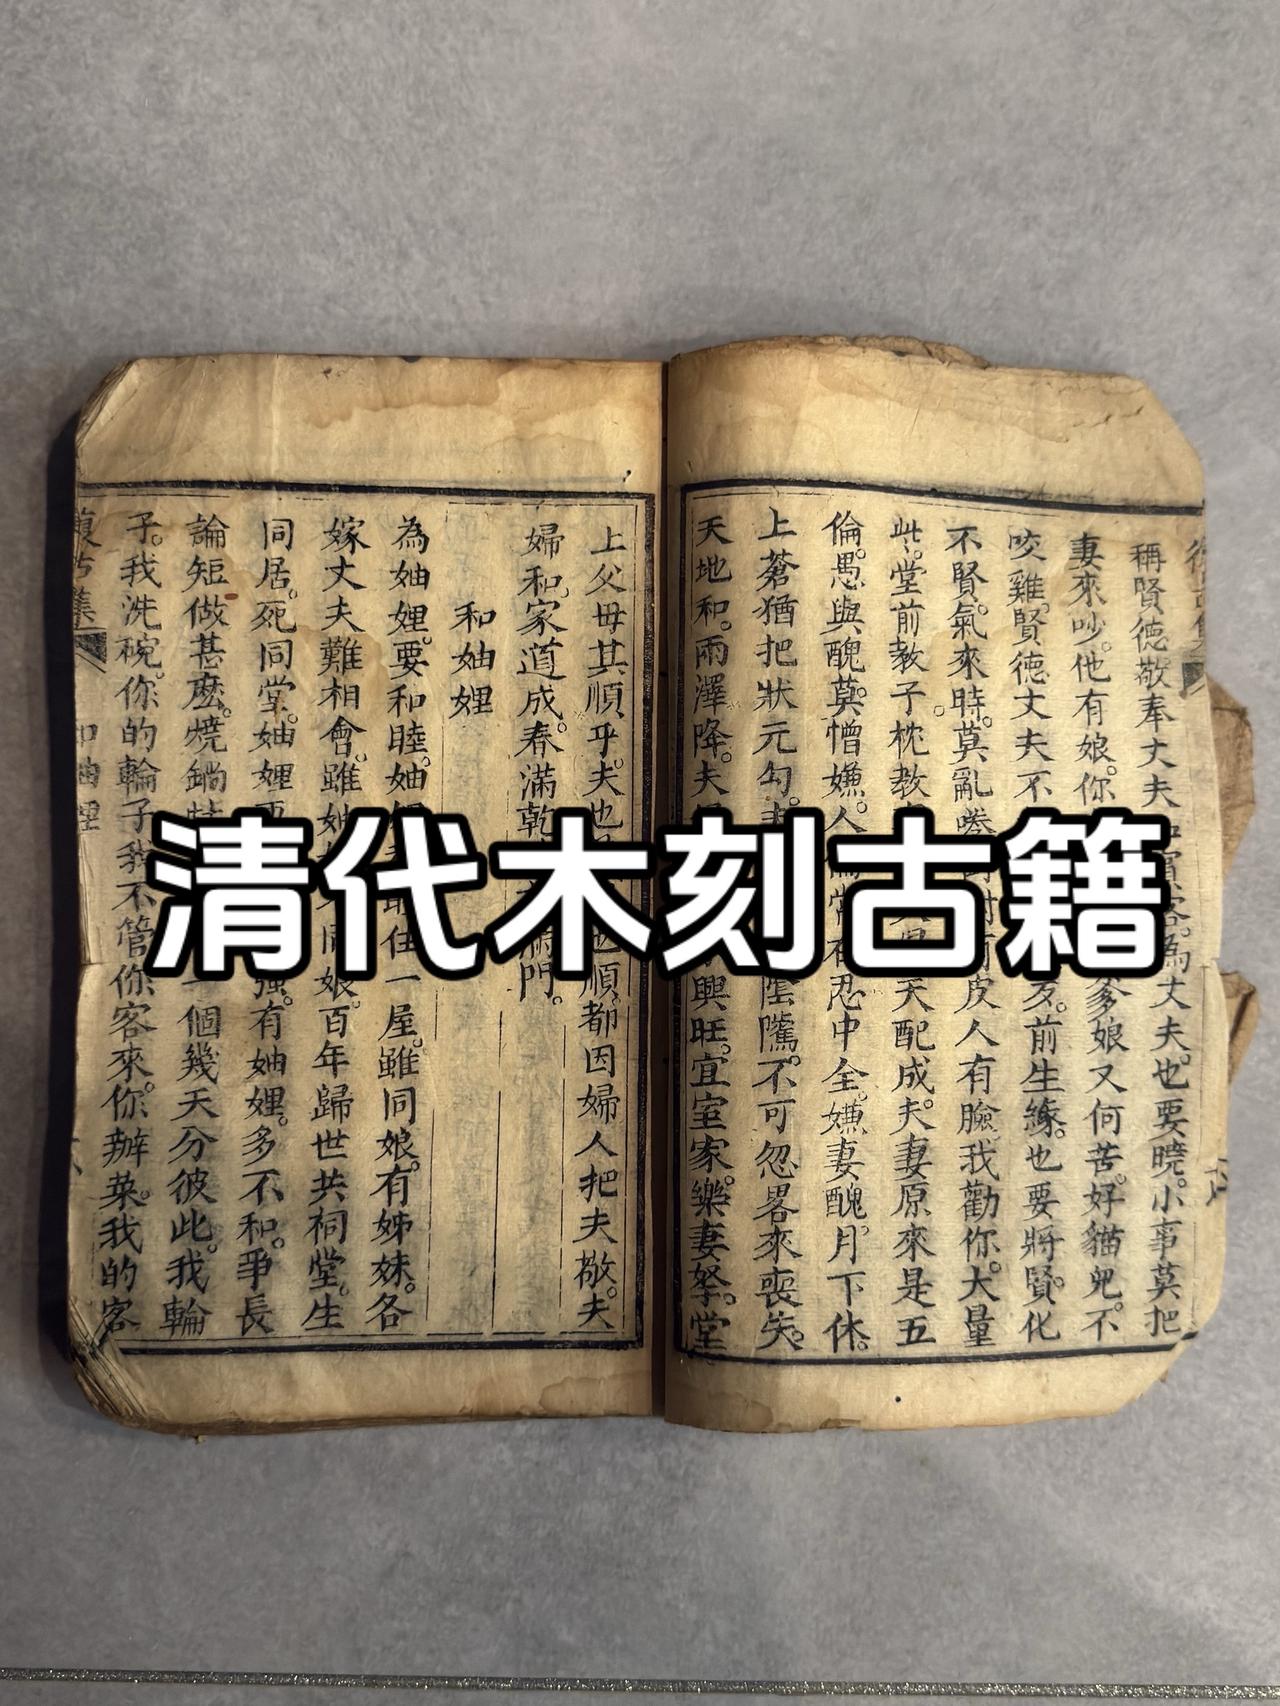 清代木刻古籍
稱賢德敬奉丈夫 賓客。為丈夫。也要曉。小事莫把
妻來吵。他有娘。你 爹娘又何苦。好貓兒。不
咬雞。賢德丈夫不 前生緣。也要將賢。化
不賢。氣來時。莫亂 皮人有臉。我勸你。大量
此。堂前教子。枕教 天配成。夫妻原來是五
倫。愚與醜。莫憎嫌。人 忍中全。嫌妻醜。月下休。
上蒼猶把狀元勾。 陰騭。不可忽畧來喪失。
天地和。雨澤降。夫 興旺。宜室家。樂妻孥。堂
上父母其順乎。夫也 順。都因婦人把夫敬。夫
婦和。家道成。春滿乾 門。
和妯娌
為妯娌。要和睦。妯 住一屋。雖同娘。有姊妹。各
嫁丈夫難相會。雖妯 娘。百年歸世共祠堂。生
同居。死同堂。妯娌 強。有妯娌。多不和。爭長
論短做甚麼。燒鍋 一個幾天分彼此。我輪
子。我洗碗。你的輪子我不管。你客來。你辦菜。我的客
和妯娌